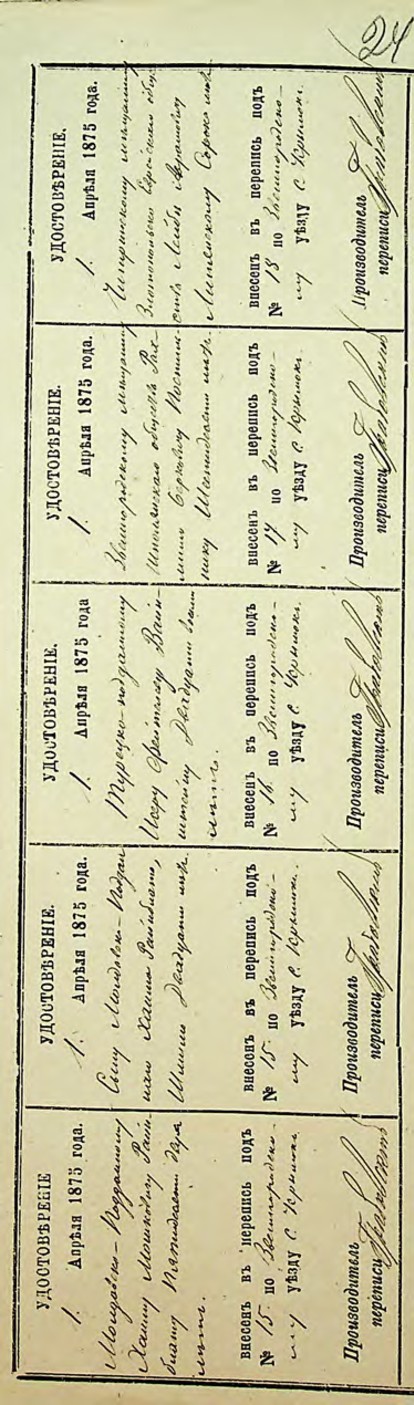 24
УДОСТОВѢРЕНІЕ
1. Апрѣля 1875 года.
Молдавско-Подданному
Хаиму Мошковичу Рай-
бману Пятидесяти два
лѣтъ.
внесенъ въ перепись подъ
№ 15. по Звенигородско-
му уѣзду с. Крымки.
Производитель
переписи
УДОСТОВѢРЕНІЕ.
1. Апрѣля 1875 года.
Сыну Молдавско-Поддан
наго Хаима
Двадцати лѣт.
внесенъ въ перепись подъ
№ 15. по Звенигородско-
му уѣзду с. Крымки.
Производитель
переписи
УДОСТОВѢРЕНІЕ.
1. Апрѣля 1875 года
Турецко-подданному
Вайн-
штейну Двадцати восьми
лѣтъ.
внесенъ въ перепись подъ
№ 16. по Звенигородско-
му уѣзду с. Крымки.
Производитель
переписи
УДОСТОВѢРЕНІЕ.
1. Апрѣля 1875 года.
Звенигородскому мѣщанину
Шполянскаго общества Рах-
Берковичу
лѣт.
внесенъ въ перепись подъ
№ 17 по Звенигородско-
му уѣзду с. Крымки.
Производитель
переписи
УДОСТОВѢРЕНІЕ.
1. Апрѣля 1875 года.
Чигиринскому мѣщанину
Златопольскаго Еврейскаго общ
ства Лейбѣ Абрамовичу
Сорока лѣт.
внесенъ въ перепись подъ
№ 18 по Звенигородско-
му уѣзду с. Крымки.
Производитель
переписи